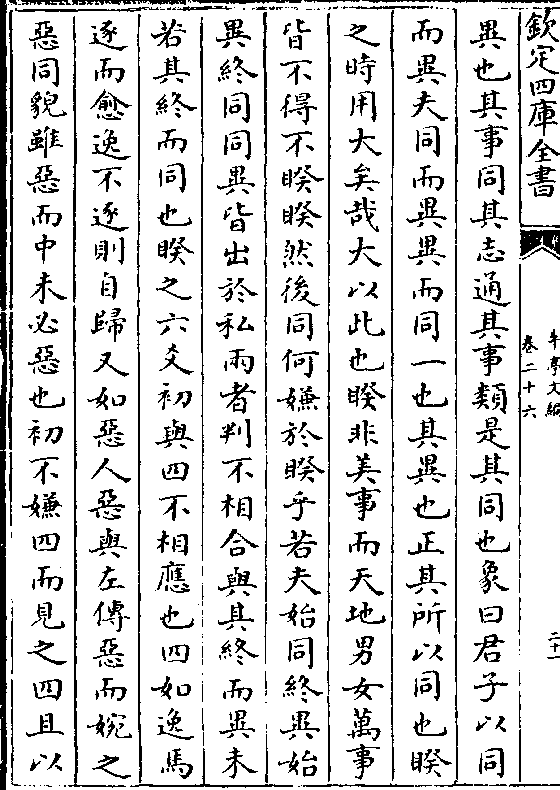 欽定四庫全書
卷二十六
二十一
異也其事同其志通其事類是其同也象曰君子以同
而異夫同而異異而同一也其異也正其所以同也睽
之時用大矣哉大以此也睽非美事而天地男女萬事
皆不得不睽睽然後同何嫌於睽乎若夫始同終異始
異終同同異皆出於私兩者判不相合與其終而異未
若其終而同也睽之六爻初與四不相應也四如逸馬
逐而愈逸不逐則自歸又如惡人惡與左傳惡而婉之
惡同貌雖惡而中未必惡也初不嫌四而見之四且以